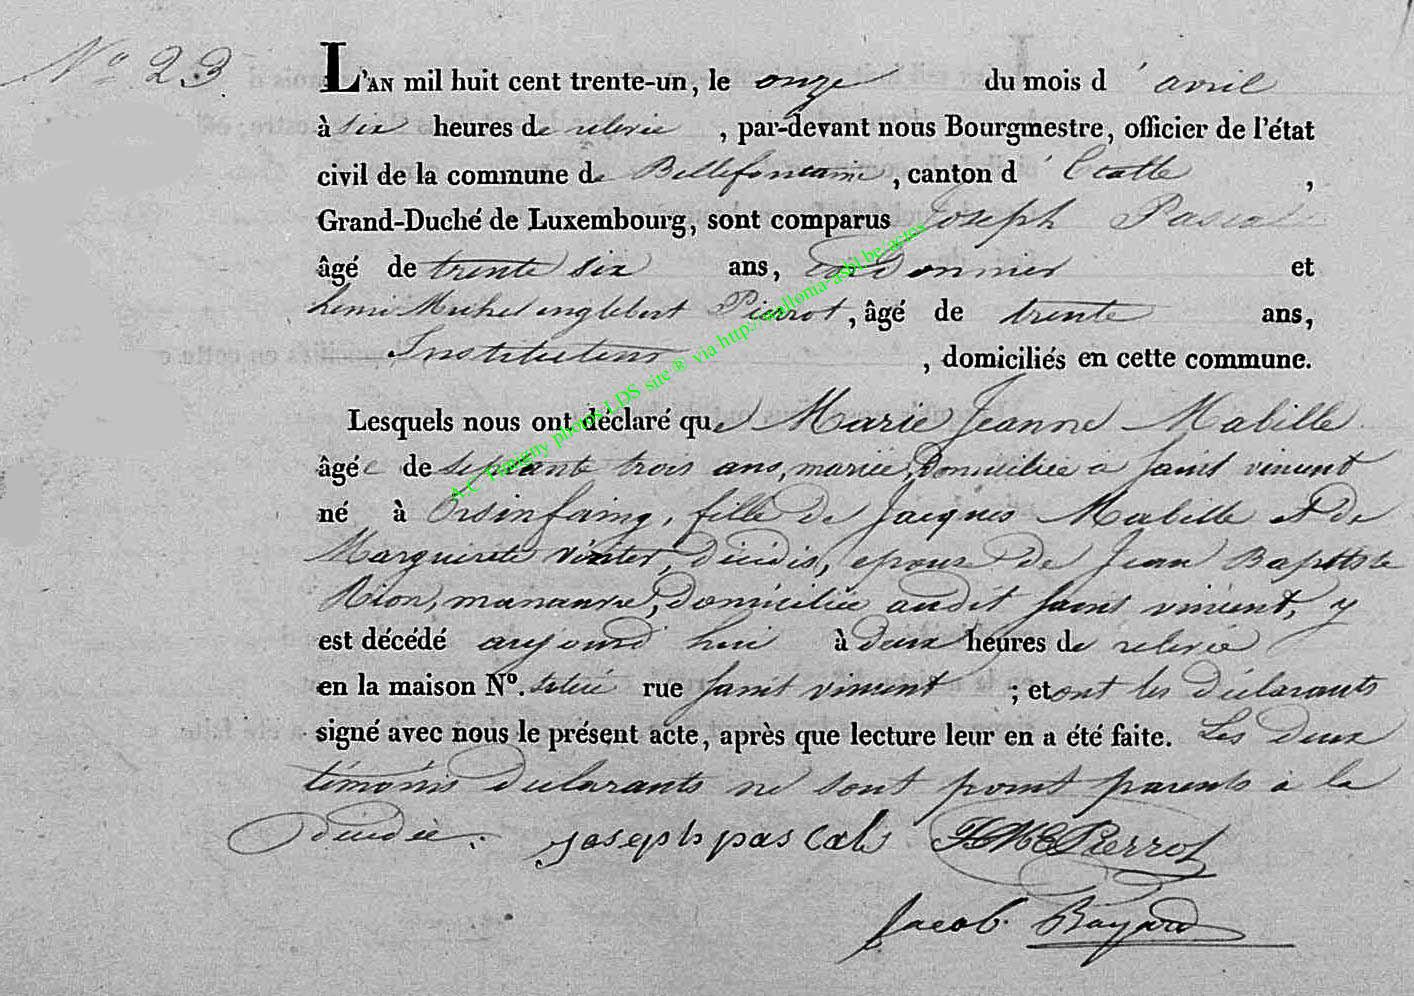 N° 23
L'AN mil huit cent trente-un, le onze du mois d'avril
à six heures de relevée, par-devant nous Bourgmestre, officier de l'état
civil de la commune de Bellefontaine, canton d'Etalle,
Grand-Duché de Luxembourg, sont comparus Joseph Pascal
âgé de trente six ans, cordonnier et
henri Michel englebert Pierrot, âgé de trente ans,
Instituteur, domiciliés en cette commune.
Lesquels nous ont déclaré que Marie Jeanne Mabille
âgée de septante trois ans, mariée, domiciliée a saint vincent
né à Orsinfaing, fille de Jacques Mabille et de
Marguerite décédés, epouse de Jean Baptiste
Rion, manœuvre, domiciliée audit saint vincent, y
est décédé aujourd hui à deux heures de relevée
en la maison N°. rue saint vincent ; et ont les déclarants
signé avec nous le présent acte, après que lecture leur en a été faite. Les deux
témoins déclarants ne sont point parents à la
décédée.
joseph pascal HME Pierrot
Jacob. Bayard
A.C. Tintigny photos LDS site ® via http://wallonia-asbl.be/actes